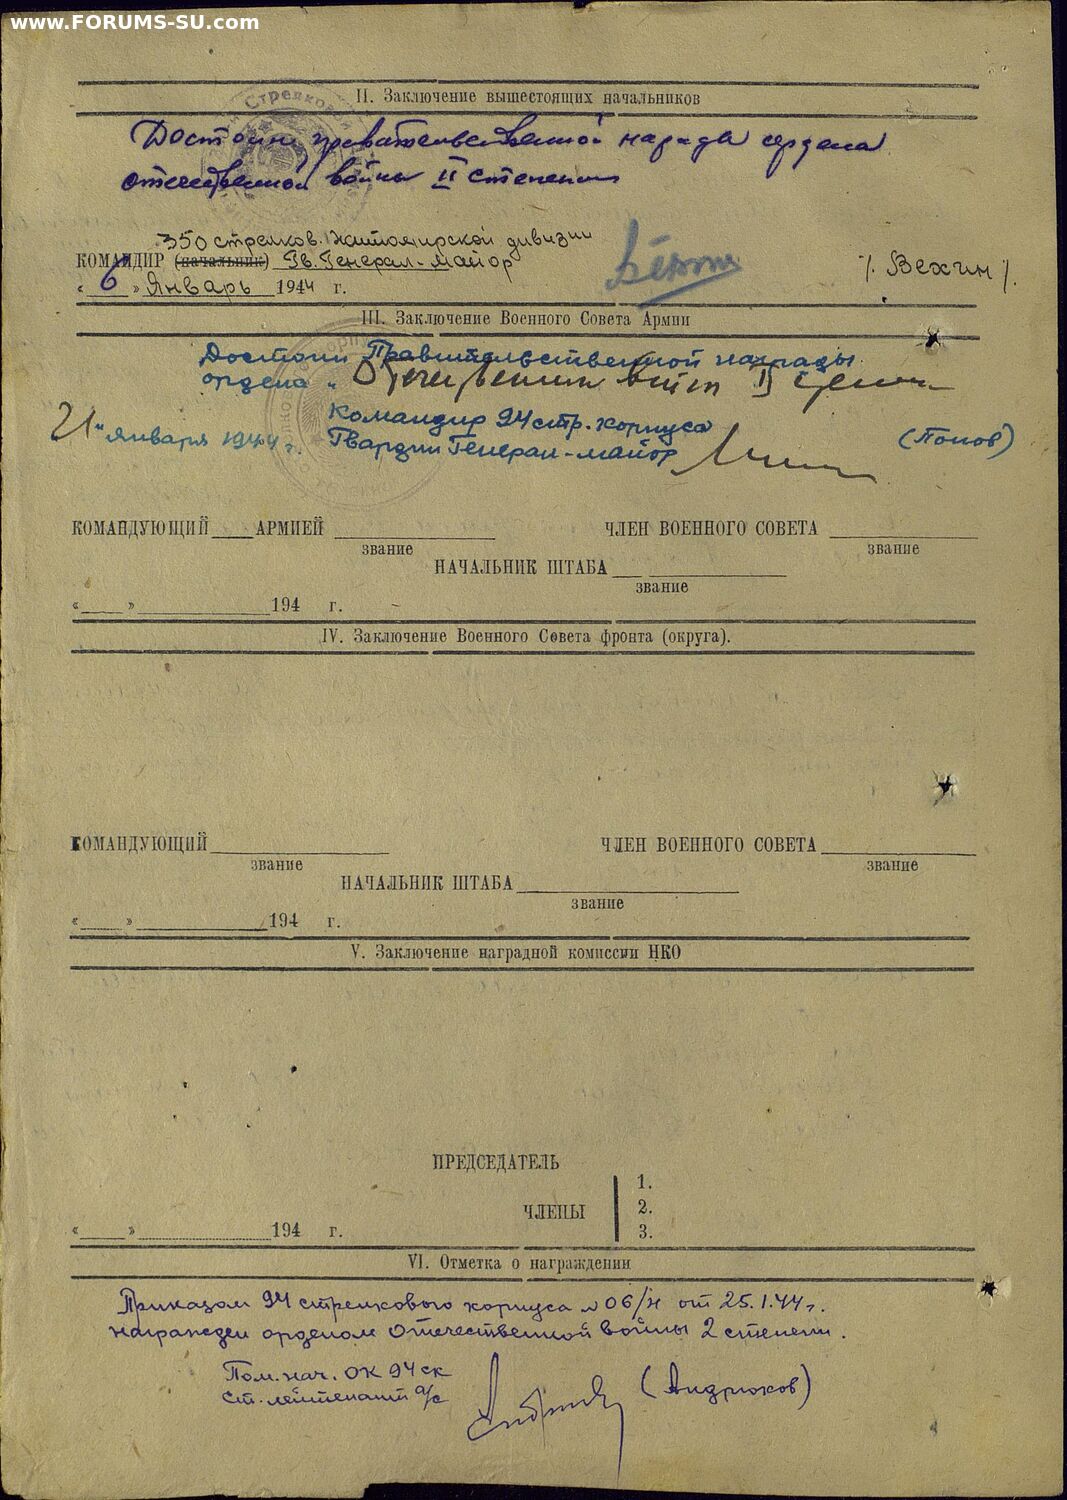 www.FORUMS-SU.com
II. Заключение вышестоящих начальников
Достоин правительственной награды ордена
отечественной войны II степени
350 стрелков. Житомирской дивизии
КОМАНДИР (начальник) Гв. Генерал-майор
/. Вехин /.
«6» Январь 1944 г.
III. Заключение Военного Совета Армии
Достоин Правительственной награды
ордена „Отечественной войны II степени
Командир 94 стр. корпуса
21" января 1944 г. Гвардии Генерал-майор (Попов)
КОМАНДУЮЩИЙ ____ АРМИЕЙ ____ ЧЛЕН ВОЕННОГО СОВЕТА ____
звание звание
НАЧАЛЬНИК ШТАБА ____
звание
«____» ____ 194 г.
IV. Заключение Военного Совета фронта (округа).
КОМАНДУЮЩИЙ ____ ЧЛЕН ВОЕННОГО СОВЕТА ____
звание звание
НАЧАЛЬНИК ШТАБА ____
звание
«____» ____ 194 г.
V. Заключение наградной комиссии НКО
ПРЕДСЕДАТЕЛЬ
1.
ЧЛЕНЫ 2.
«____» ____ 194 г. 3.
VI. Отметка о награждении
Приказом 94 стрелкового корпуса № 06/н от 25.1.44 г.
награжден орденом Отечественной войны 2 степени.
Пом. нач. ОК 94 ск
Ст. лейтенант а/с (Андрюков)